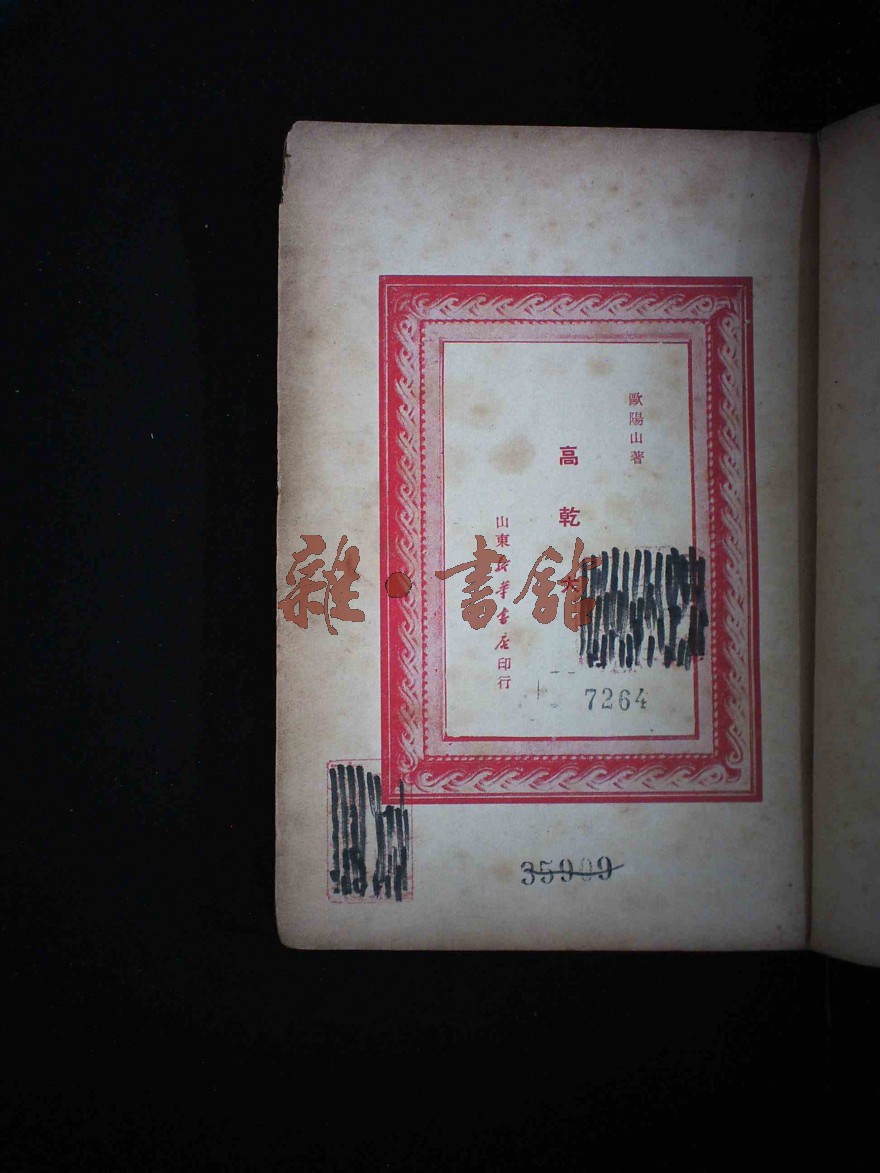 歐陽山著
高乾大
山東新華書店印行
7264
35909
雜·書館